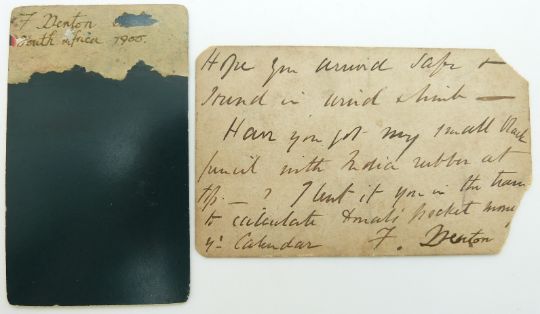 F Denton
South Africa 1900.
Hope you arrived safe &
sound in wind & limb —
Have you got my small black
pencil with India rubber at
tip — ? I lent it you in the tram
to calculate pocket money
yr Calendar F. Denton